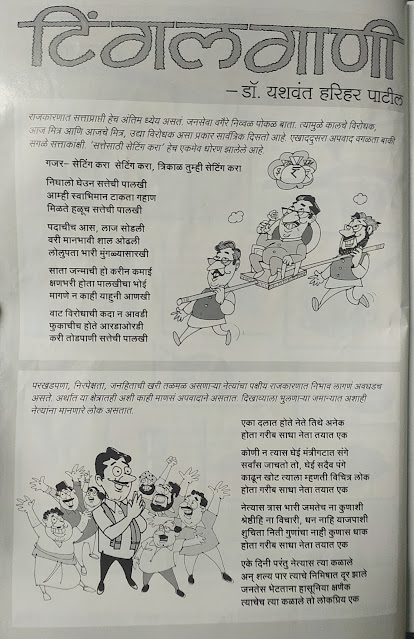 टिंगलगाणी
– डॉ. यशवंत हरिहर पाटील
राजकारणात सत्ताप्राप्ती हेच अंतिम ध्येय असतं. जनसेवा वगैरे निव्वळ पोकळ बाता. त्यामुळे कालचे विरोधक,
आज मित्र आणि आजचे मित्र, उद्या विरोधक असा प्रकार सार्वत्रिक दिसतो आहे. एखाददुसरा अपवाद वगळता बाकी
सगळे सत्ताकांक्षी. 'सत्तेसाठी सेटिंग करा' हेच एकमेव धोरण झालेले आहे.
गजर– सेटिंग करा सेटिंग करा, त्रिकाळ तुम्ही सेटिंग करा
निघालो घेउन सत्तेची पालखी
आम्ही स्वाभिमान टाकता गहाण
मिळते हळूच सत्तेची पालखी
पदाचीच आस, लाज सोडली
वरी मानभावी शाल ओढली
लोलुपता भारी मुंगळ्यासारखी
साता जन्माची हो करीन कमाई
क्षणभरी होता पालखीचा भोई
मागणे न काही याहुनी आणखी
वाट विरोधाची कदा न आवडी
फुकाचीच होते आरडाओरडी
करी तोडपाणी सत्तेची पालखी
परखडपणा, निरपेक्षता, जनहिताची खरी तळमळ असणाऱ्या नेत्यांचा पक्षीय राजकारणात निभाव लागणं अवघडच
असते. अर्थात या क्षेत्रातही अशी काही माणसं अपवादाने असतात. दिखाव्याला भुलणाऱ्या जमान्यात अशाही
नेत्यांना मानणारे लोक असतात.
एका दलात होते नेते तिथे अनेक
होता गरीब साधा नेता तयात एक
कोणी न त्यास घेई मंत्रीगटात संगे
सर्वांस जाचतो तो, घेई सदैव पंगे
काढून खोट त्याला म्हणती विचित्र लोक
होता गरीब साधा नेता तयात एक
नेत्यास त्रास भारी जमतेच ना कुणाशी
श्रेष्ठीहि ना विचारी, धन नाहि याजपाशी
शुचिता निती गुणांचा नाही कुणास धाक
होता गरीब साधा नेता तयात एक
एके दिनी परंतु नेत्यास त्या कळाले
अन् शल्य पार त्याचे निमिषात दूर झाले
जनतेस भेटताना हासूनिया क्षणैक
त्याचेच त्या कळाले तो लोकप्रिय एक